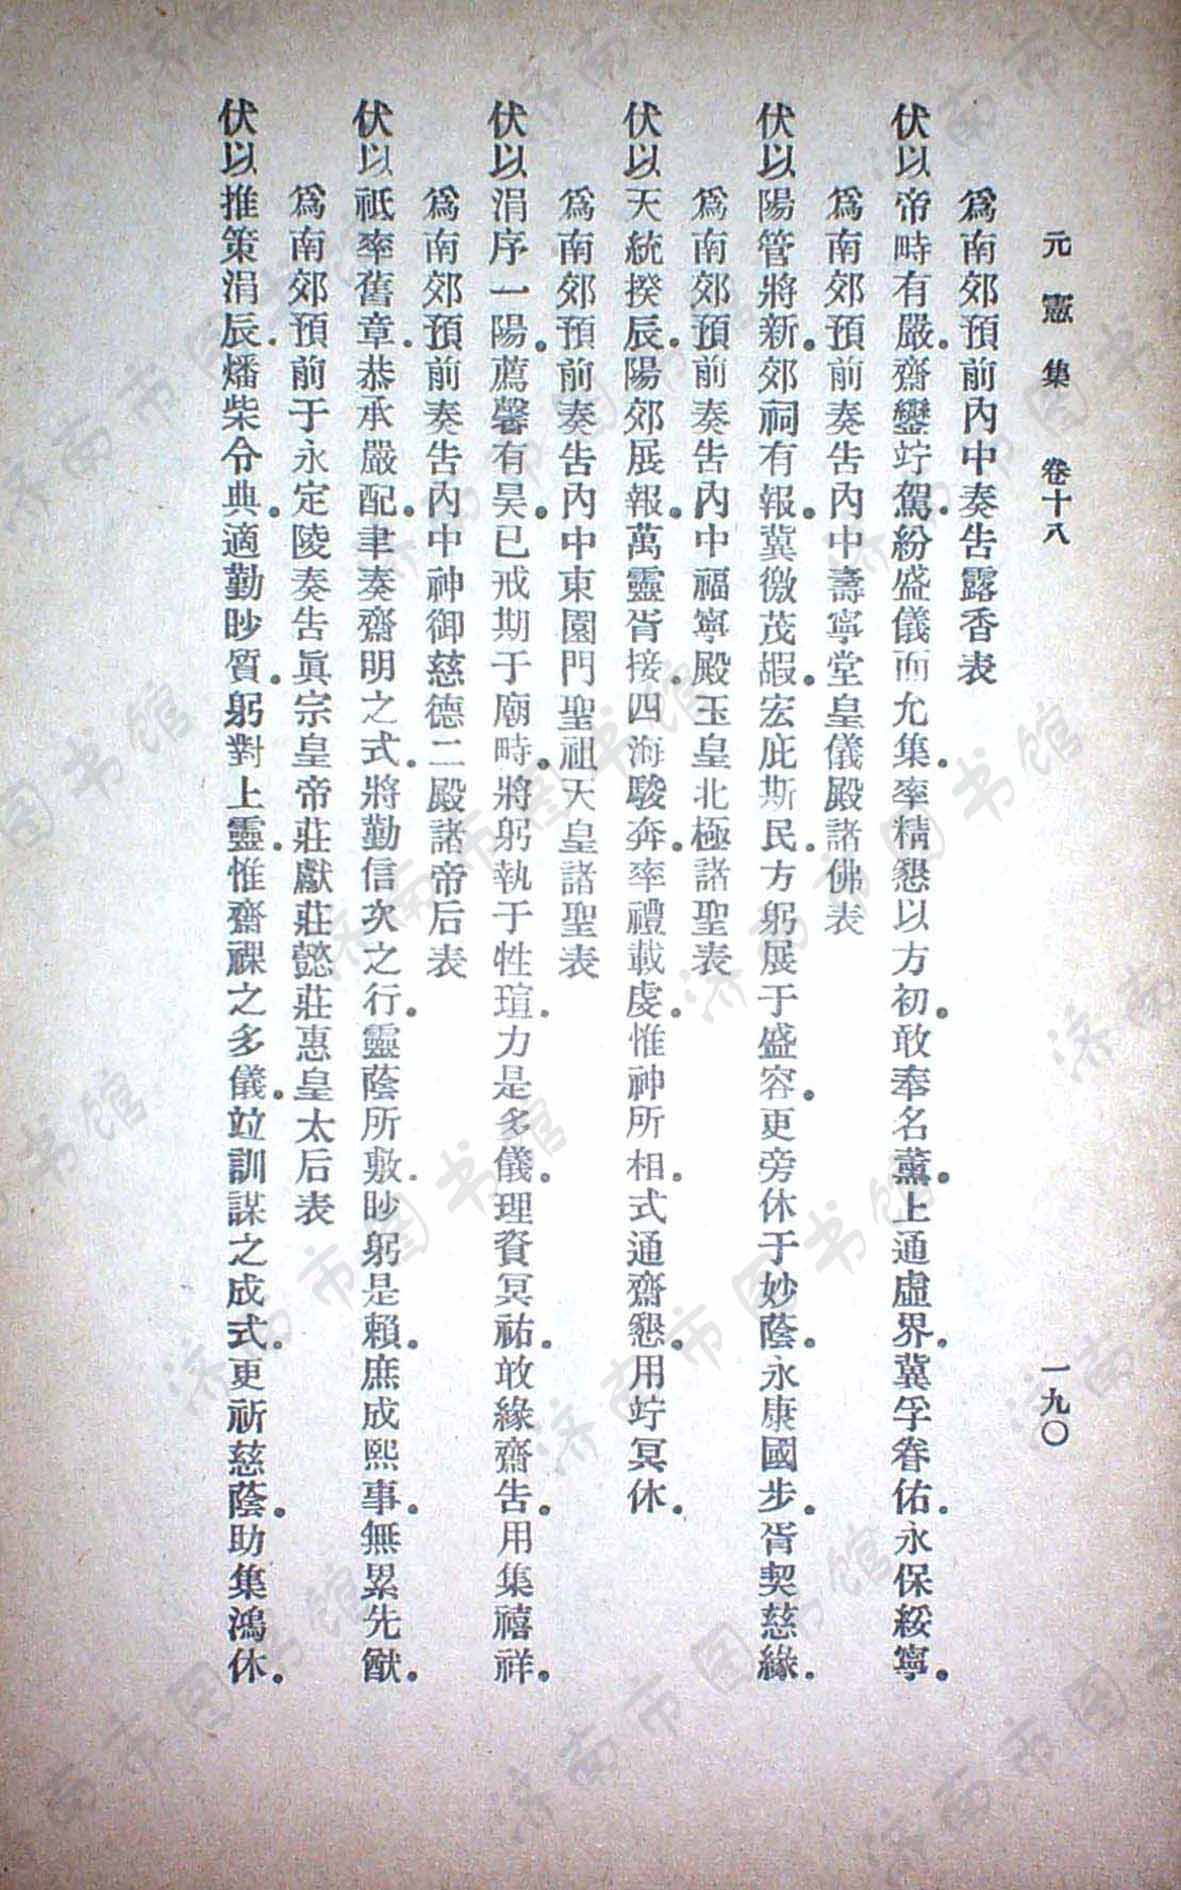 元憲集 卷十八 一九〇
爲南郊預前內中奏告露香表
伏以帝畤有嚴。齋鑾竚駕。紛盛儀而允集。率精懇以方初。敢奉名薰。上通虛界。冀孚眷佑。永保綏寧。
爲南郊預前奏告內中壽寧堂皇儀殿諸佛表
伏以陽管將新。郊祠有報。冀徼茂嘏。宏庇斯民。方躬展于盛容。更旁休于妙蔭。永康國步。胥契慈緣。
爲南郊預前奏告內中福寧殿玉皇北極諸聖表
伏以天統揆辰。陽郊展報。萬靈胥接。四海駿奔。率禮載虔。惟神所相。式通齋懇。用竚冥休。
爲南郊預前奏告內中東園門聖祖天皇諸聖表
伏以涓序一陽。薦馨有昊。已戒期于廟畤。將躬執于牲瑄。力是多儀。理資冥祐。敢緣齋告。用集禧祥。
爲南郊預前奏告內中神御慈德二殿諸帝后表
伏以祗率舊章。恭承嚴配。聿奏齋明之式。將勤信次之行。靈蔭所敷。眇躬是賴。庶成熙事。無累先猷。
爲南郊預前于永定陵奏告眞宗皇帝莊獻莊懿莊惠皇太后表
伏以推策涓辰。燔柴令典。適勤眇質。躬對上靈。惟齋祼之多儀。竝訓謀之成式。更祈慈蔭。助集鴻休。
济南市图书馆